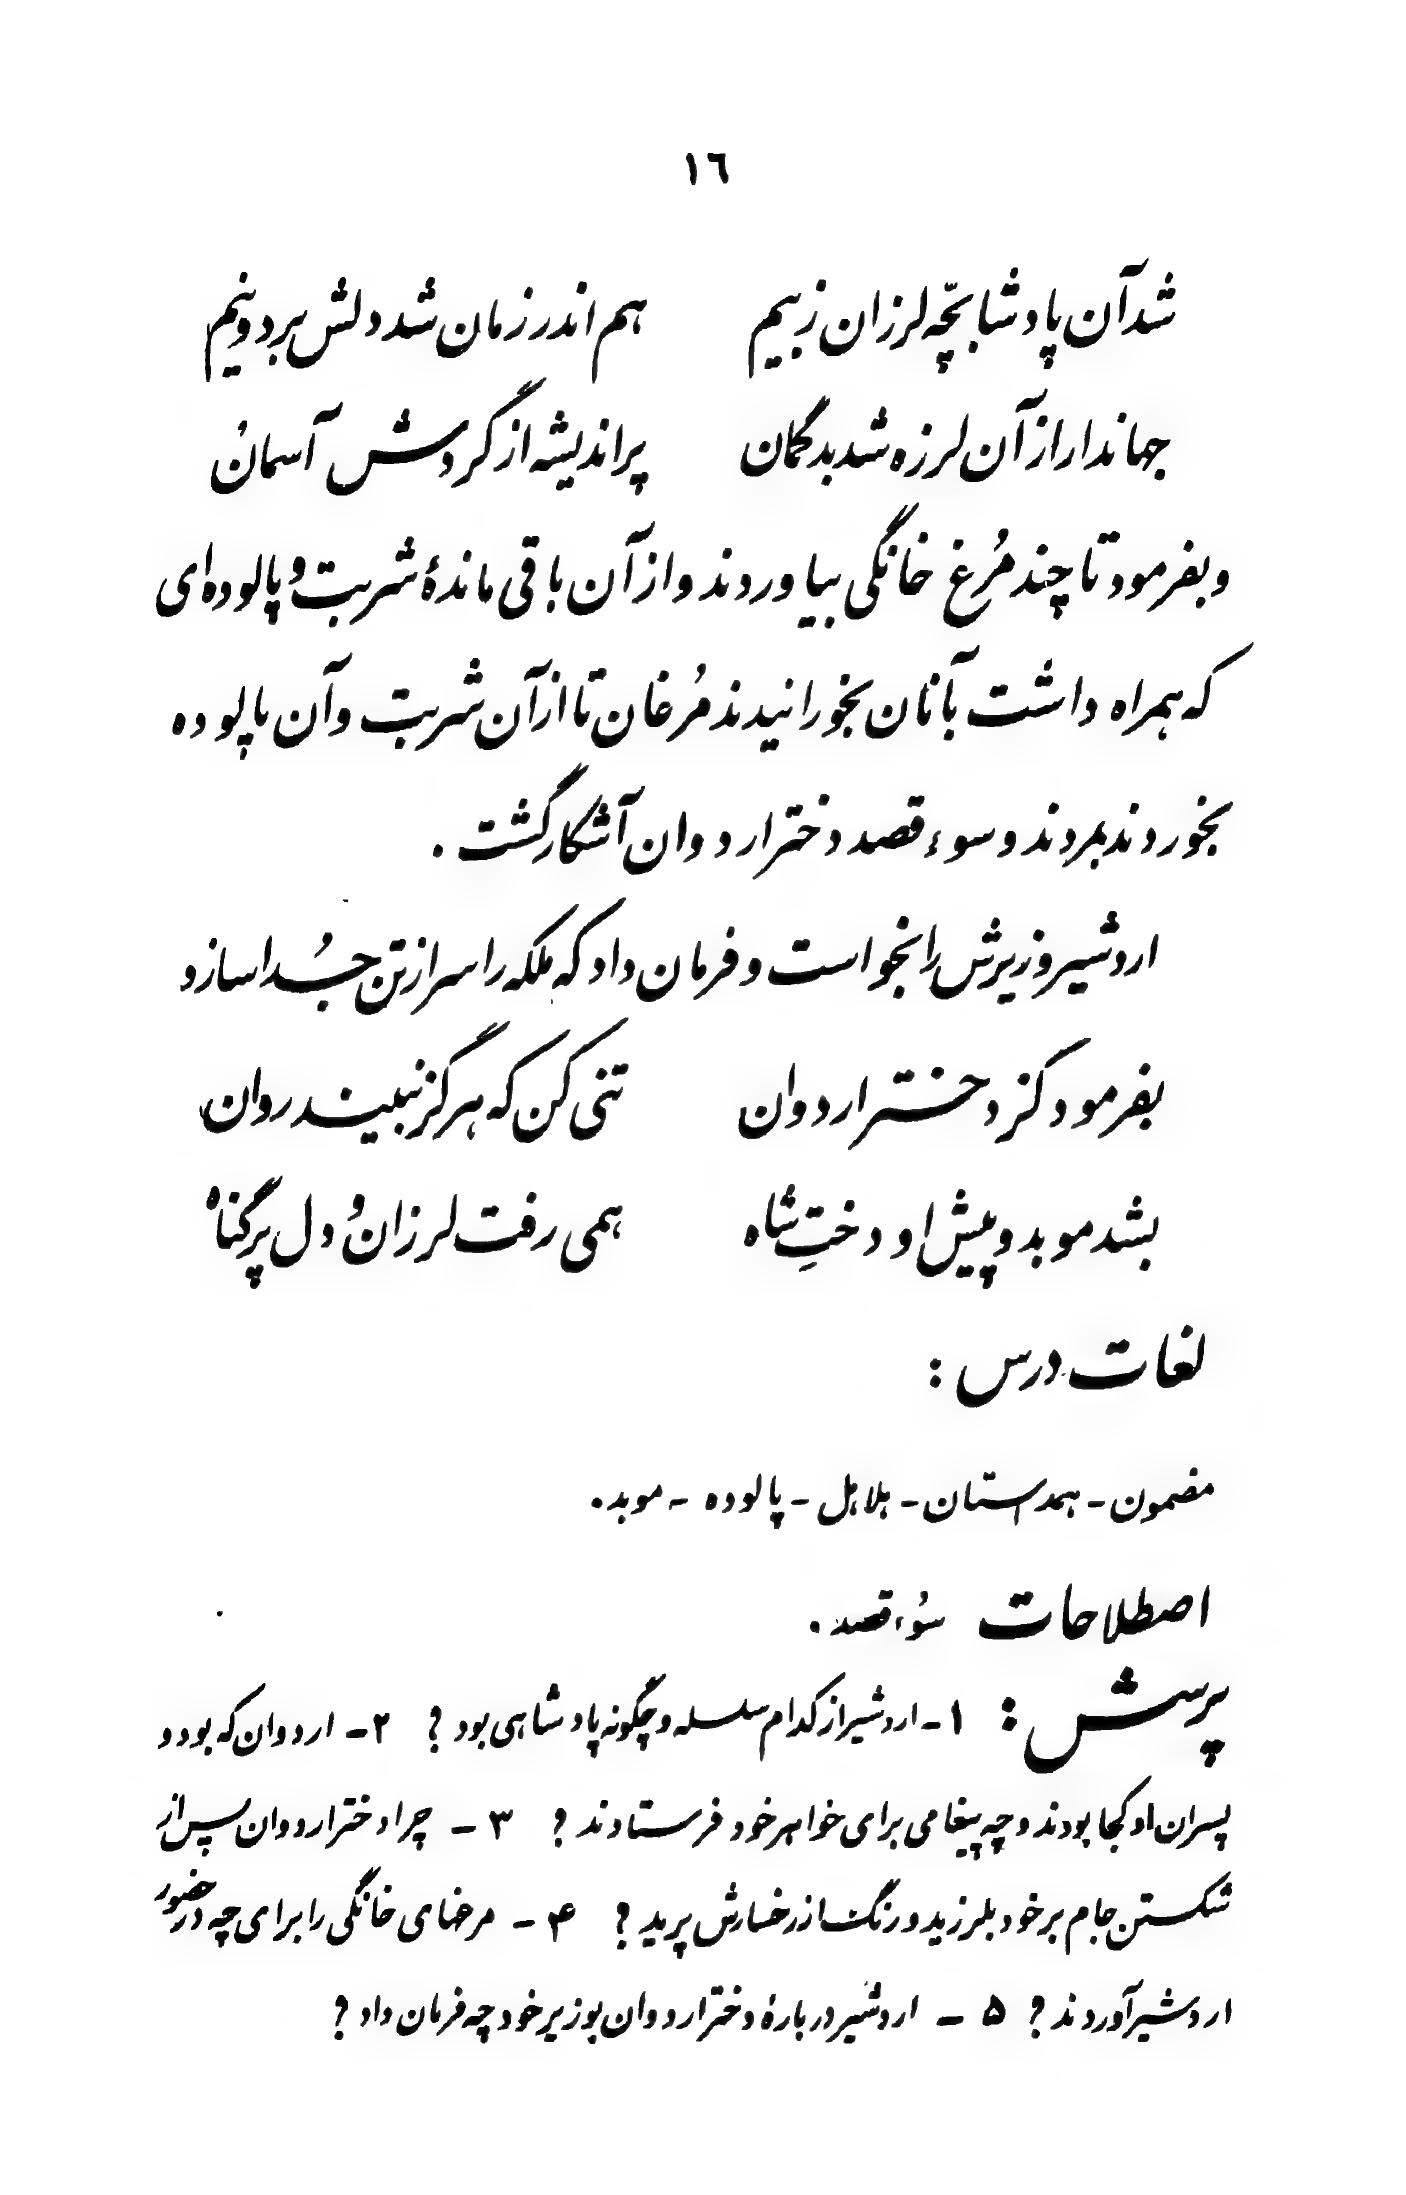 ١٦
شد آن پادشا بچّه لرزان ز بیم هم اندر زمان شد دلش بر دو نیم
جهاندار از آن لرزه شد بدگمان پراندیشه از گردش آسمان
و بفرمود تا چند مُرغ خانگی بیاوردند و از آن باقی ماندهٔ شربت و پالوده‌ای
که همراه داشت بآنان بخورانیدند مُرغان تا از آن شربت و آن پالوده
بخوردند بمردند و سوء قصد دختر اردوان آشکار گشت .
اردشیر وزیرش را بخواست و فرمان داد که ملکه را سر از تن جُدا سازد
بفرمود کز دختر اردوان تنی کن که هرگز نبیند روان
بشد موبد و پیش او دختِ شاه همی رفت لرزان و دل پر گناه
لغات درس :
مضمون - همداستان - هلاهل - پالوده - موبد .
اصطلاحات سُوء قصد .
پرسش : ۱- اردشیر از کدام سلسله و چگونه پادشاهی بود ؟ ۲- اردوان که بود و
پسران او کجا بودند و چه پیغامی برای خواهر خود فرستادند ؟ ۳ - چرا دختر اردوان پس از
شکستن جام بر خود بلرزید و رنگ از رخسارش پرید ؟ ۴ - مرغهای خانگی را برای چه در حضور
اردشیر آوردند ؟ ۵ - اردشیر دربارهٔ دختر اردوان بوزیر خود چه فرمان داد ؟